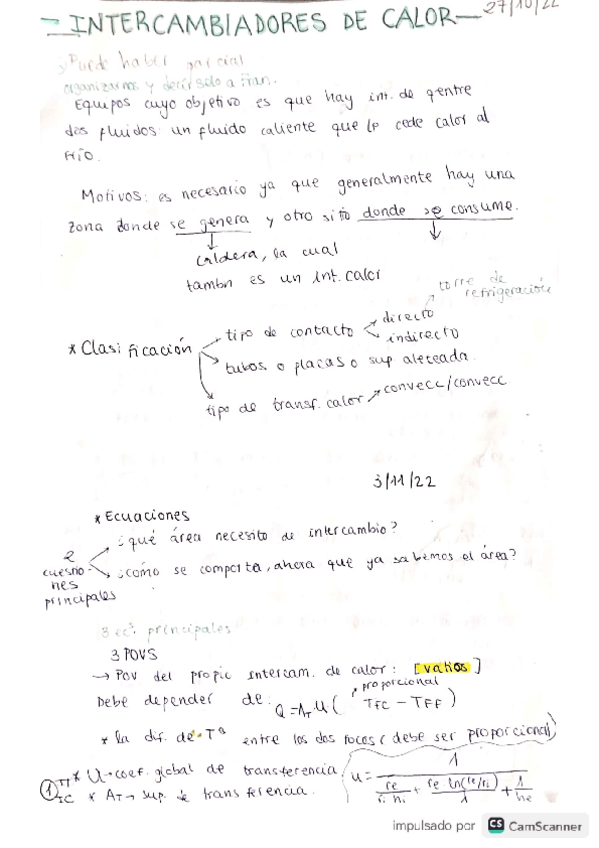 - INTERCAMBIADORES DE CALOR - 27/10/22
Puede haber parcial
organizarnos y decírselo a Fran.
Equipos cuyo objetivo es que hay int. de q entre
dos fluidos: un fluido caliente que le cede calor al
frío.
Motivos: es necesario ya que generalmente hay una
zona donde se genera y otro sitio donde se consume.
caldera, la cual
tambn es un int. calor
* Clasificación
tipo de contacto
directo
torre de refrigeración
indirecto
tubos o placas o sup aleteada.
tipo de transf. calor
convecc/convecc
3/11/22
* Ecuaciones
2 cuestiones principales
¿qué área necesito de intercambio?
¿cómo se comporta, ahora que ya sabemos el área?
3 ecs principales
3 POVS
→ POV del propio intercam. de calor: [vatios]
Debe depender de: Q = AT U ( TFC - TFF )
proporcional
* la dif. de Tª entre los dos focos (debe ser proporcional)
① TT * U → coef. global de transferencia
IC * AT → sup. de transferencia.
u = 1 / ( re / ri hi + re ln(re/ri) / λ + 1 / he )
impulsado por CS CamScanner